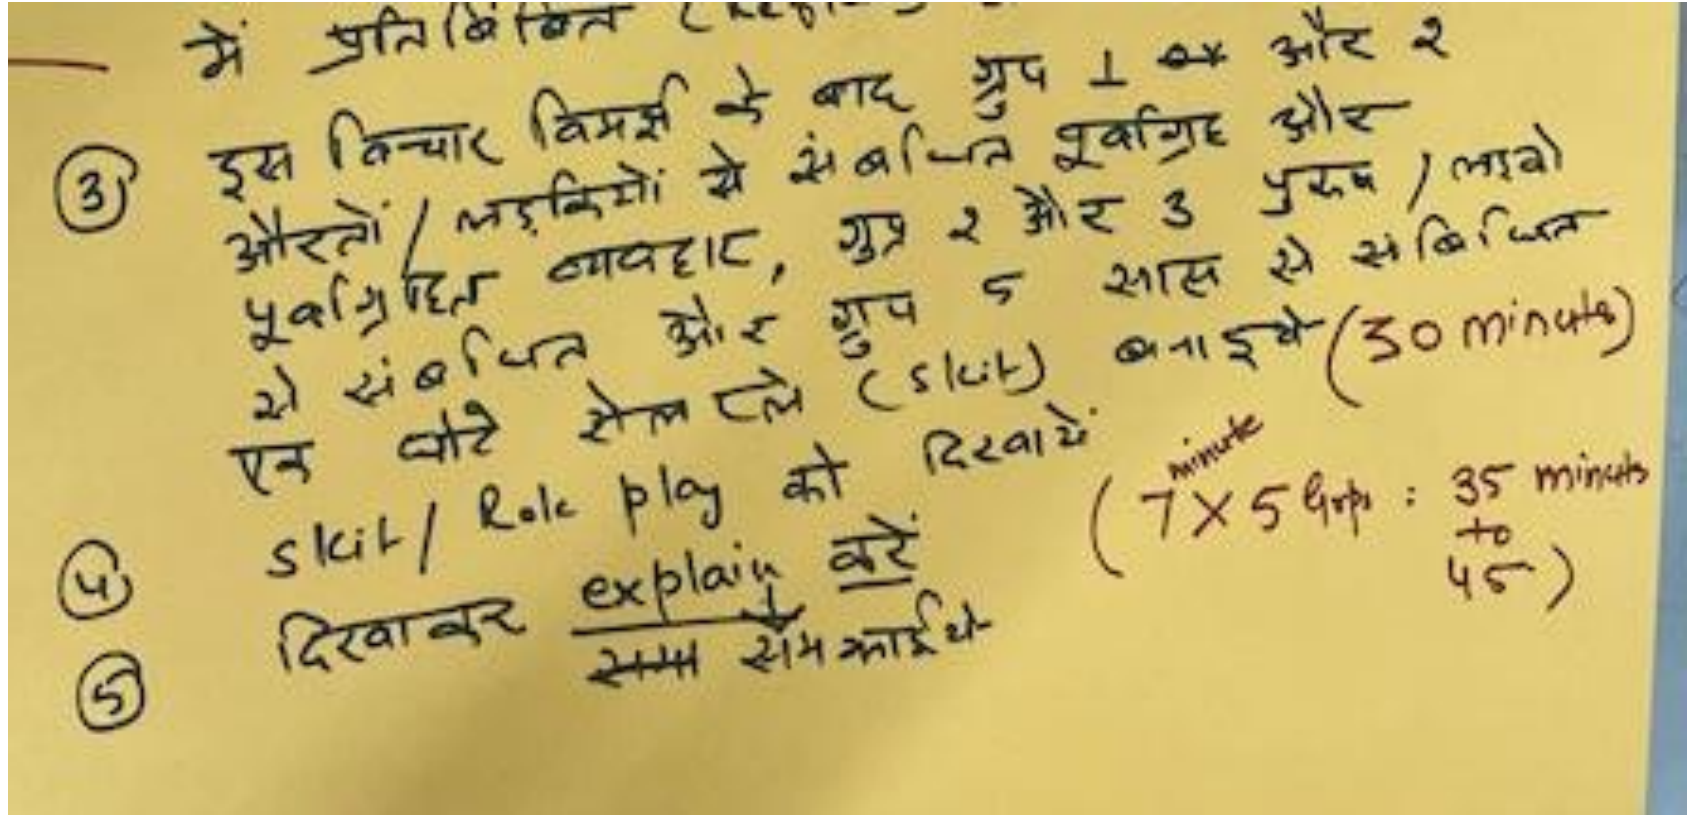 में प्रतिबिंबित
③ इस विचार विमर्श के बाद ग्रुप 1 और २
औरतों / लड़कियों से संबंधित पूर्वाग्रह और
पूर्वाग्रहित व्यवहार, ग्रुप २ और 3 पुरुष / लड़को
से संबंधित और ग्रुप 5 सास से संबिधित
एक छोटे रोल प्ले (skit) बनाइये (30 minute)
④ skit / Role play को दिखायें (7 minute X 5 Grps : 35 minuts to 45)
⑤ दिखाकर explain करें
समझाईये